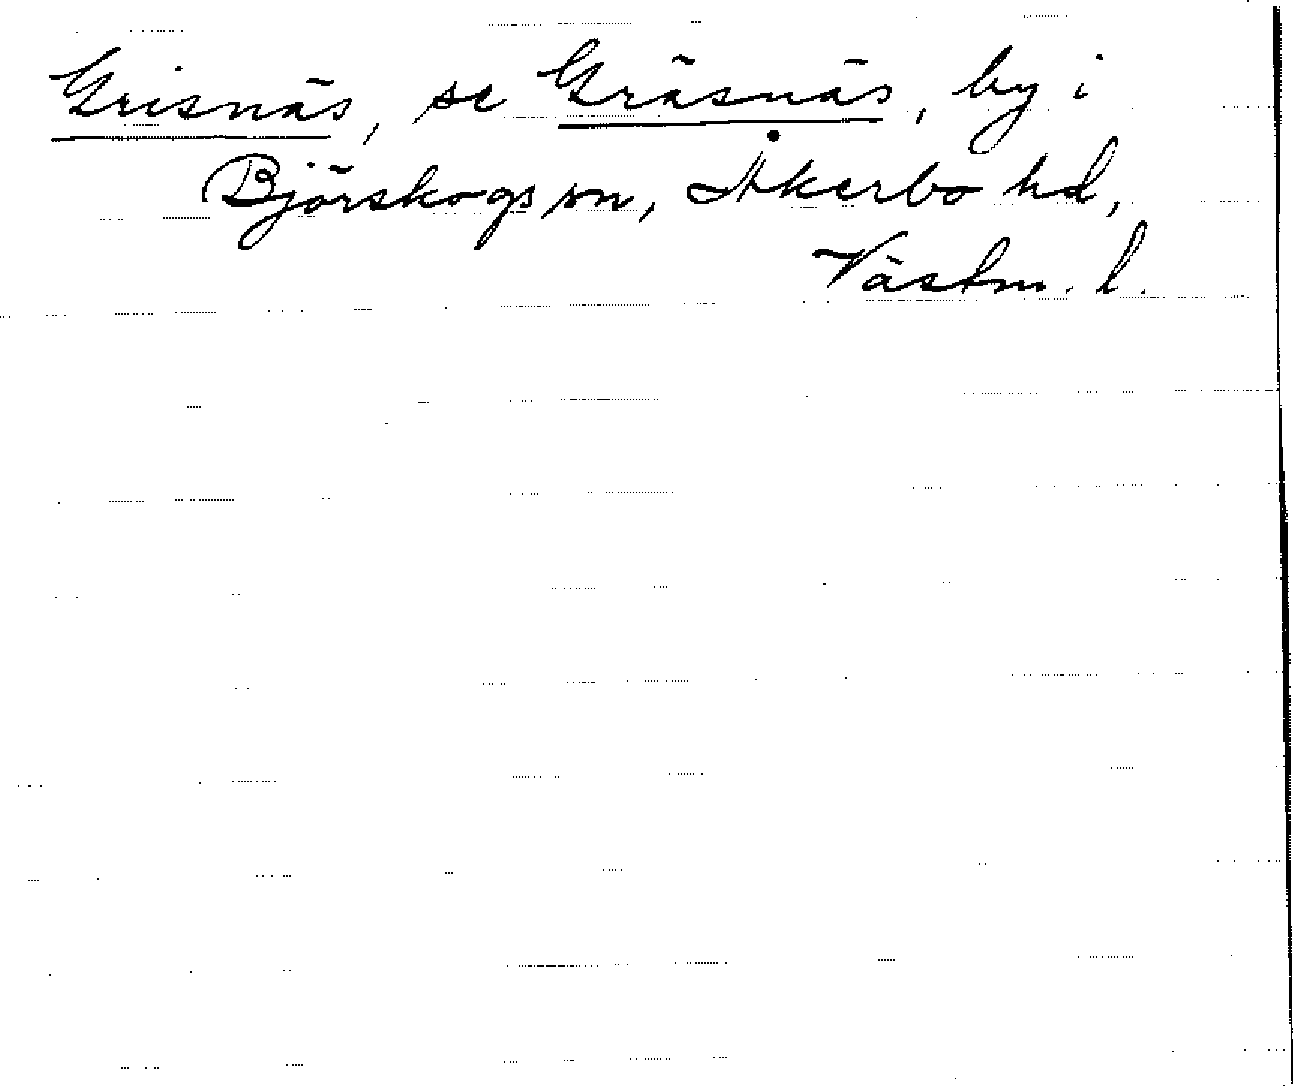 Grisnäs, se Gräsnäs, by i
Björskogs sn, Åkerbo hd,
Västm. l.